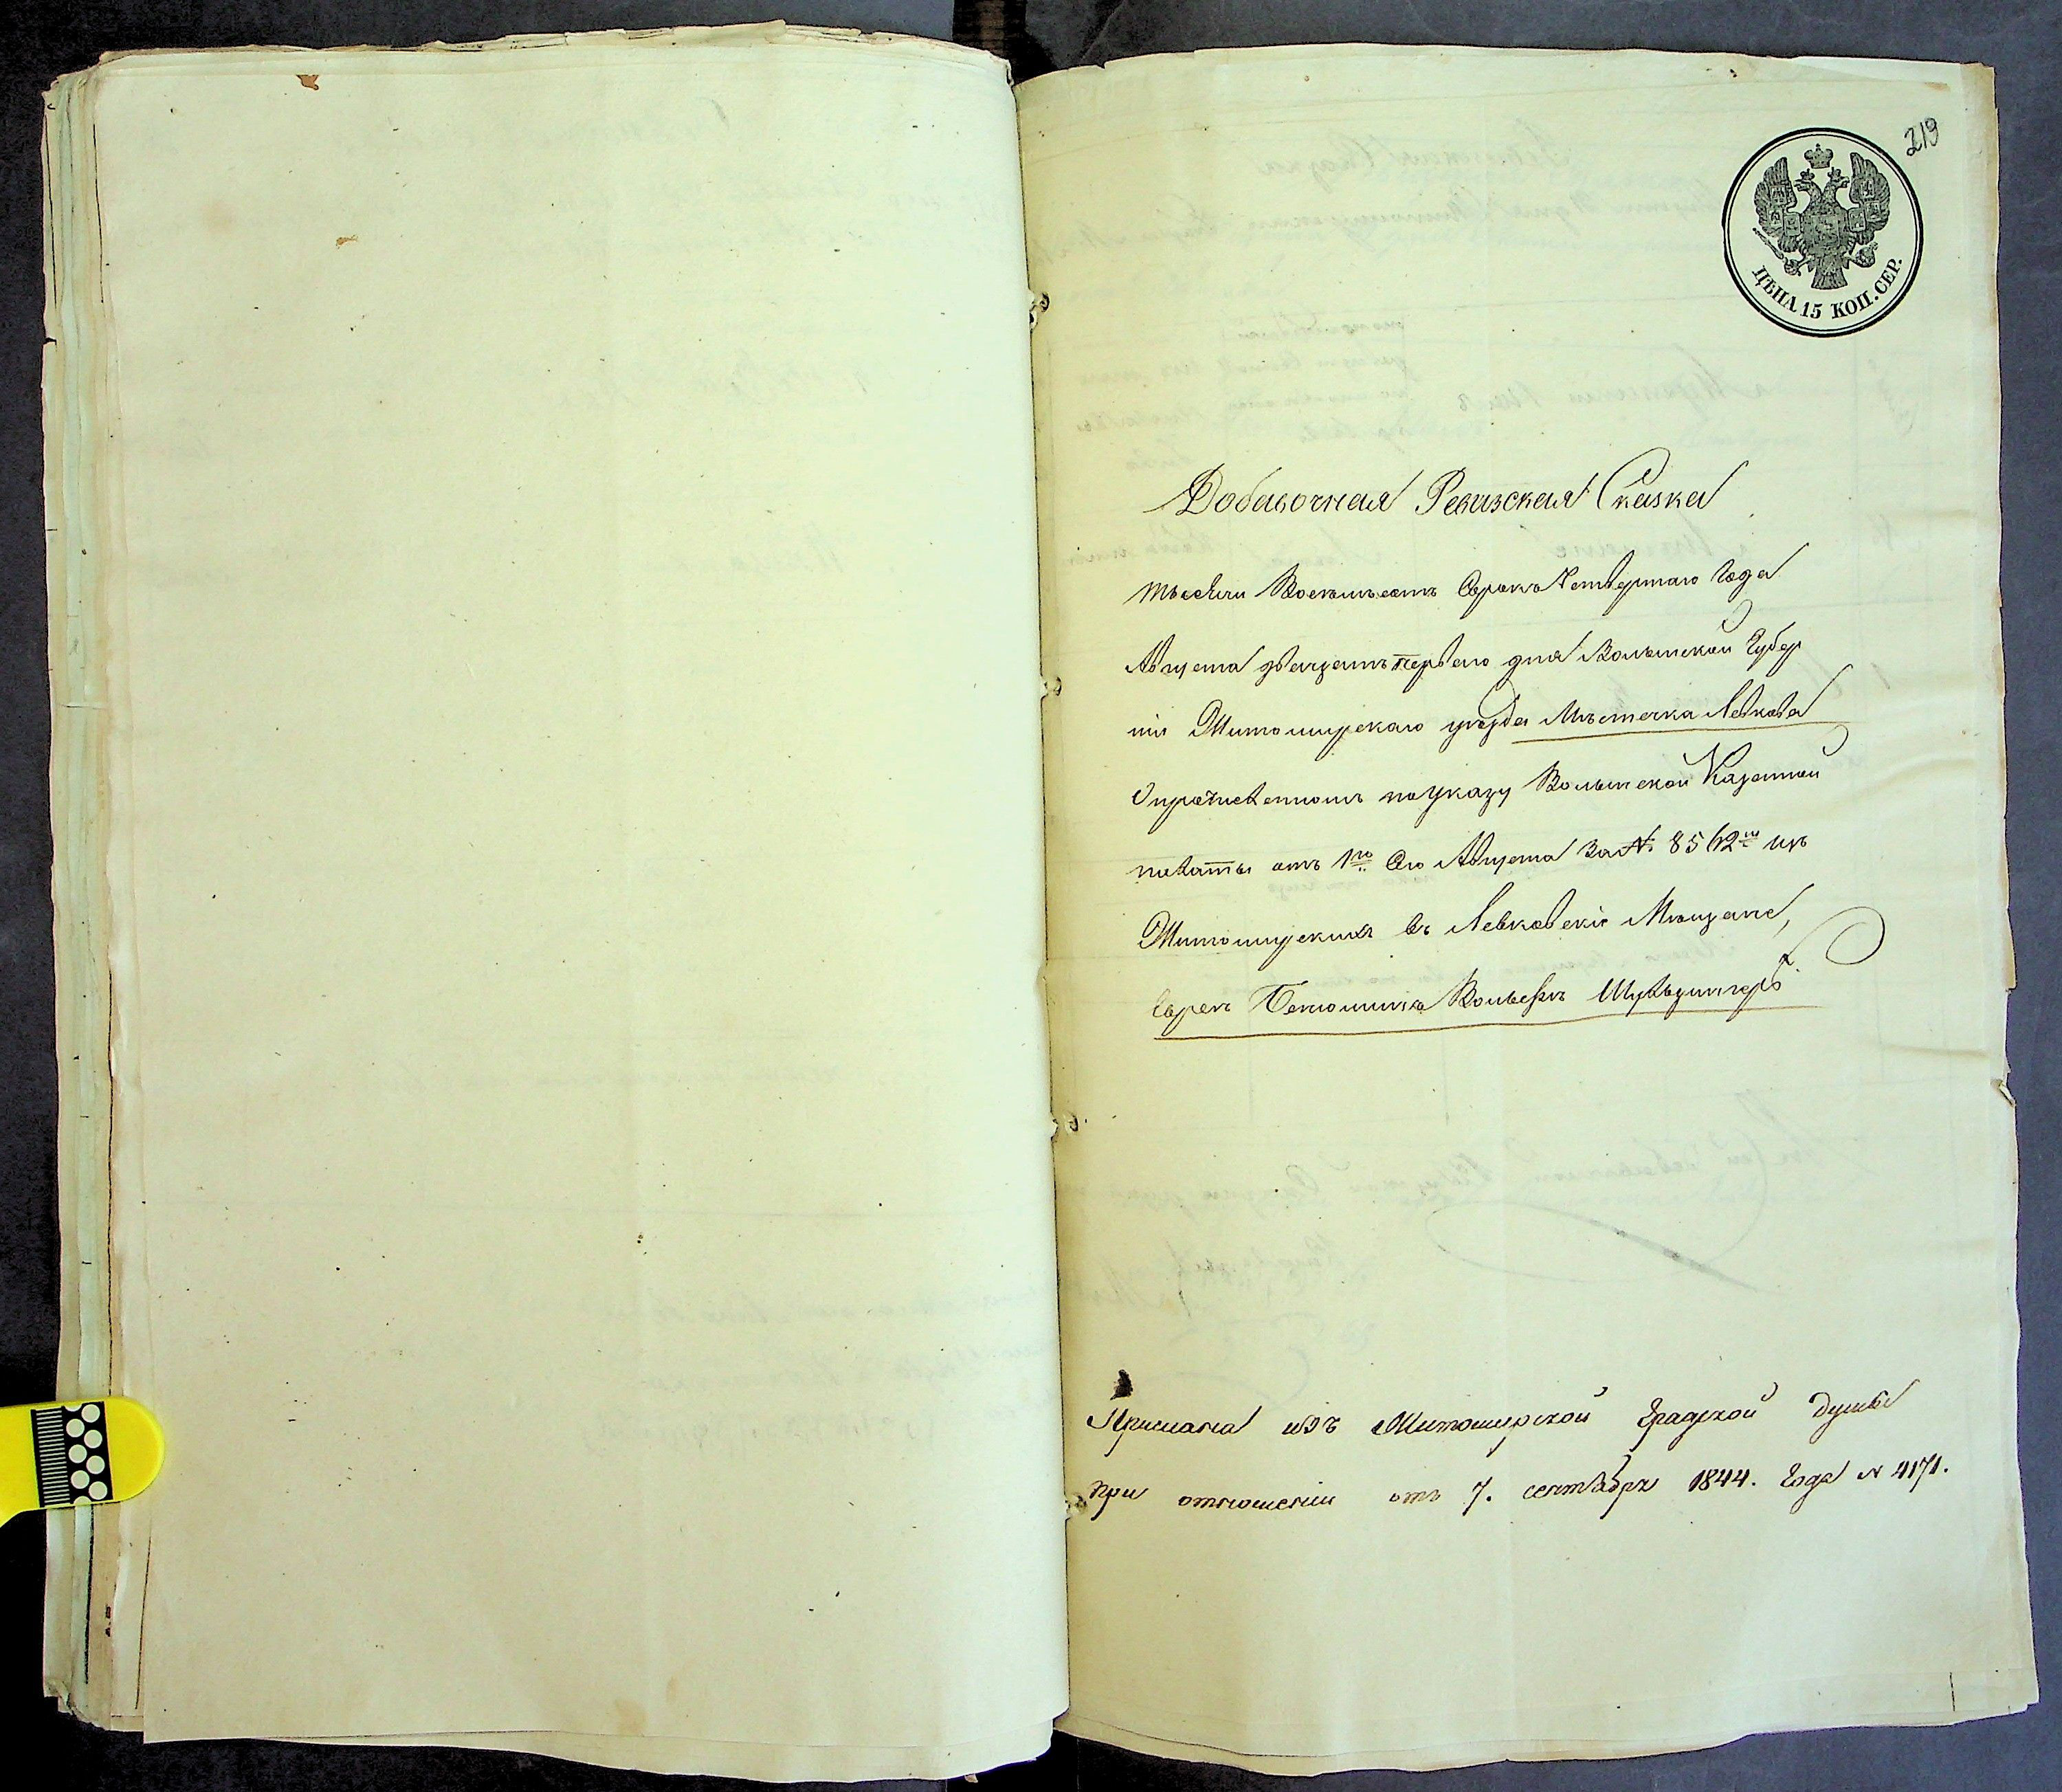 219
ЦѢНА 15 КОП. СЕР.
Добавочная Ревизская Сказка
тысячи Восемьсотъ Сорокъ Четвертаго Года
Августа двадцать перваго дня Волынской Губер
нiи Житомирскаго уѣзда Мѣстечка Левкова
О причисленномъ по Указу Волынской Казенной
палаты отъ 1го Сего Августа За № 8562мъ изъ
Житомирскихъ въ Левковскiе Мѣщане,
Еврей
Прислана изъ Житомирской Градской Думы
при отношении отъ 7. сентября 1844. Года № 4171.